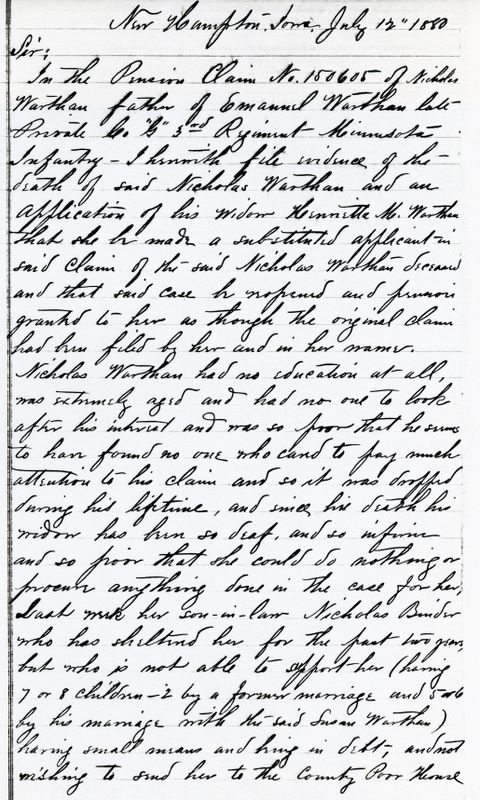 New Hampton, Iowa, July 12" 1880
Sir:
In the Pension Claim No. 150605 of Nicholas
Warthan father of Emanuel Warthan late
Private Co "G" 3rd Regiment Minnesota
Infantry - I herewith file evidence of the
death of said Nicholas Warthan and an
application of his widow Henriette M. Warthan
that she be made a substituted applicant in
said claim of the said Nicholas Warthan deceased
and that said case be reopened and pension
granted to her as though the original claim
had been filed by her and in her name.
Nicholas Warthan had no education at all,
was extremely aged and had no one to look
after his interest and was so poor that he seems
to have found no one who cared to pay much
attention to his claim and so it was dropped
during his lifetime, and since his death his
widow has been so deaf, and so infirm
and so poor that she could do nothing or
procure anything done in the case for her.
Last week her son-in-law Nicholas Binder
who has sheltered her for the past two years,
but who is not able to support her (having
7 or 8 children - 2 by a former marriage and 5 or 6
by his marriage with the said Susan Warthan)
having small means and being in debt, and not
wishing to send her to the County Poor House